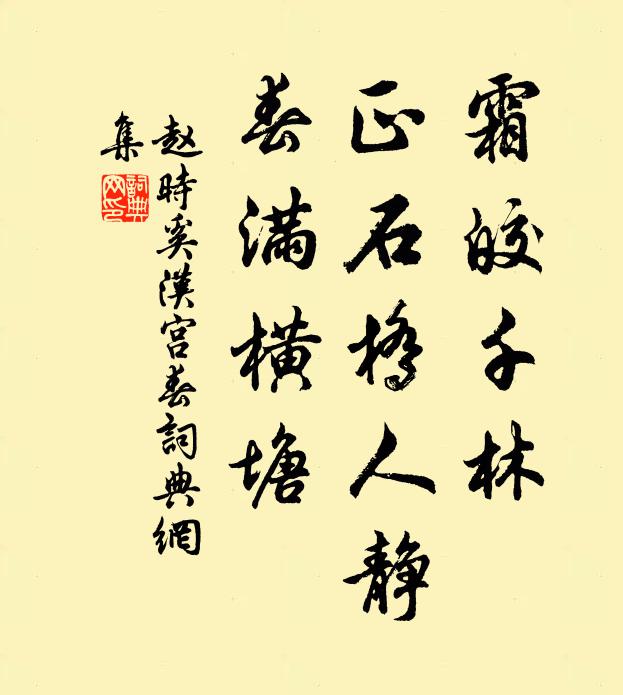 霜皎千林
正石橋人静
春滿橫塘
赵時奚漢宫春詞典網
集
詞典网印